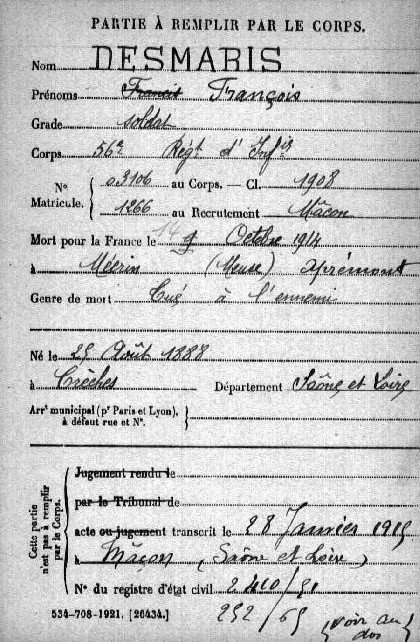 PARTIE À REMPLIR PAR LE CORPS.
Nom DESMARIS
Prénoms Francis François
Grade soldat
Corps 56e Régt d' Infie
No Matricule. 03106 au Corps. — Cl. 1908
1266 au Recrutement Mâcon
Mort pour la France le 14 9 Octobre 1914
à Mécrin (Meuse) Aprémont
Genre de mort Tué à l'ennemi
Né le 25 Août 1888
à Crèches Département Saône et Loire
Arrt municipal (pr Paris et Lyon), à défaut rue et No.
Cette partie n'est pas à remplir par le Corps.
Jugement rendu le
par le Tribunal de
acte ou jugement transcrit le 28 Janvier 1915
à Mâcon (Saône et Loire)
No du registre d'état civil
534-708-1921. [26434.] 252/65 (voir au dos)